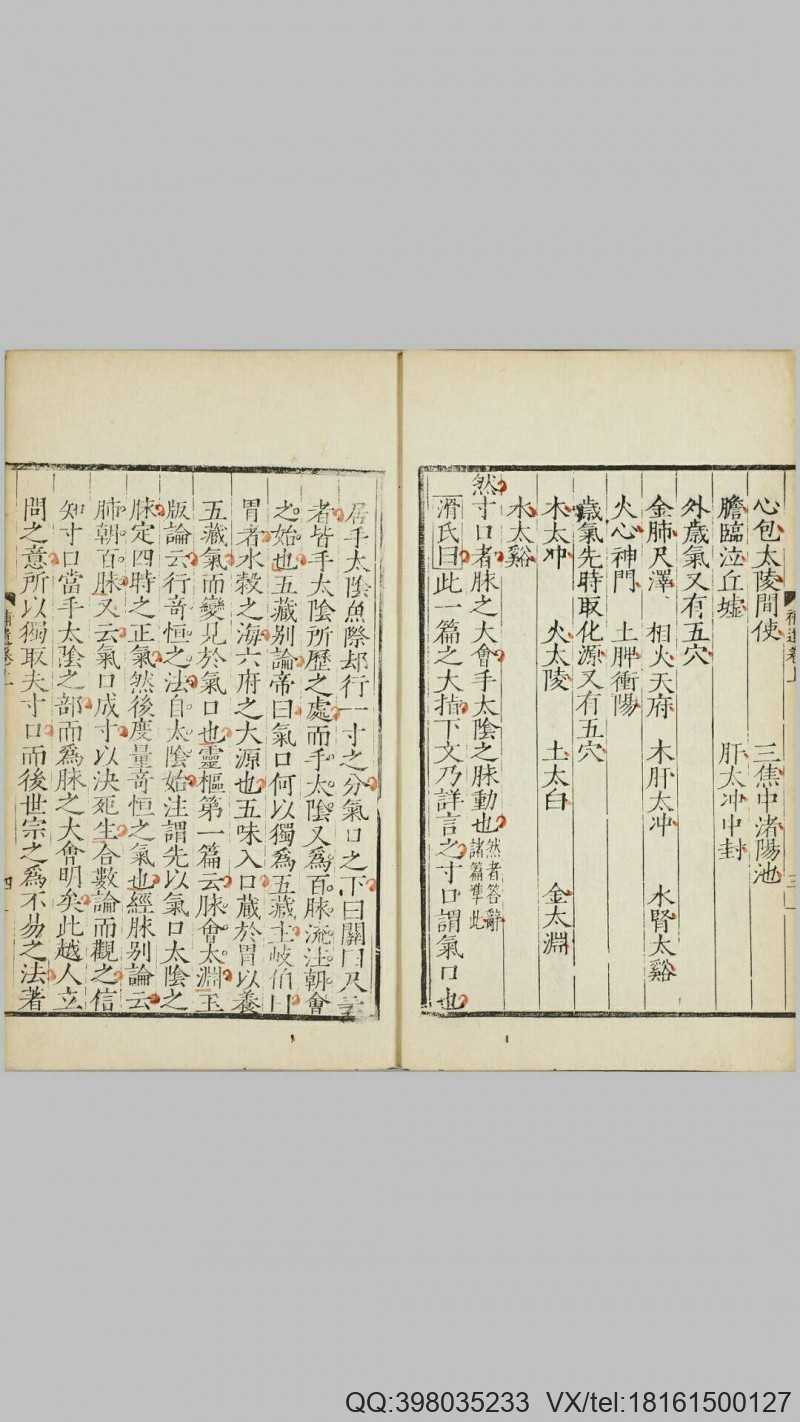 心包太陵間使　三焦中渚陽池
膽臨泣丘墟　肝太冲中封
外歲氣又有五穴
金肺尺澤　相火天府　木肝太冲　水腎太谿
火心神門　土脾衝陽
歲氣先時取化源又有五穴
木太冲　火太陵　土太白　金太淵
水太谿
然寸口者脉之大會手太陰之脉動也然者答辭諸篇準此
滑氏曰此一篇之大指下文乃詳言之寸口謂氣口也
居手太陰魚際却行一寸之分氣口之下曰關曰尺云
者皆手太陰所歷之處而手太陰又爲百脉流注朝會
之始也五藏别論帝曰氣口何以獨爲五藏主岐伯曰
胃者水穀之海六府之大源也五味入口藏於胃以養
五藏氣而變見於氣口也靈樞第一篇云脉會太淵玉
版論云行奇恒之法自太陰始注謂先以氣口太陰之
脉定四時之正氣然後度量奇恒之氣也經脉别論云
肺朝百脉又云氣口成寸以决死生合數論而觀之信
知寸口當手太陰之部而爲脉之大會明矣此越人立
問之意所以獨取夫寸口而後世宗之爲不易之法著
QQ:398035233 VX/tel:18161500127